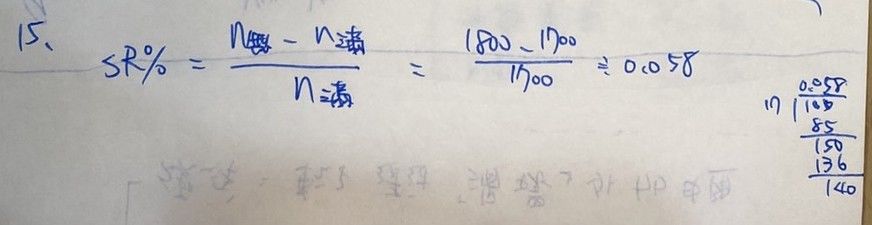 15、
SR% = (n無 - n滿) / n滿 = (1800 - 1700) / 1700 ≑ 0.058
0.058
17 | 100
85
150
136
140